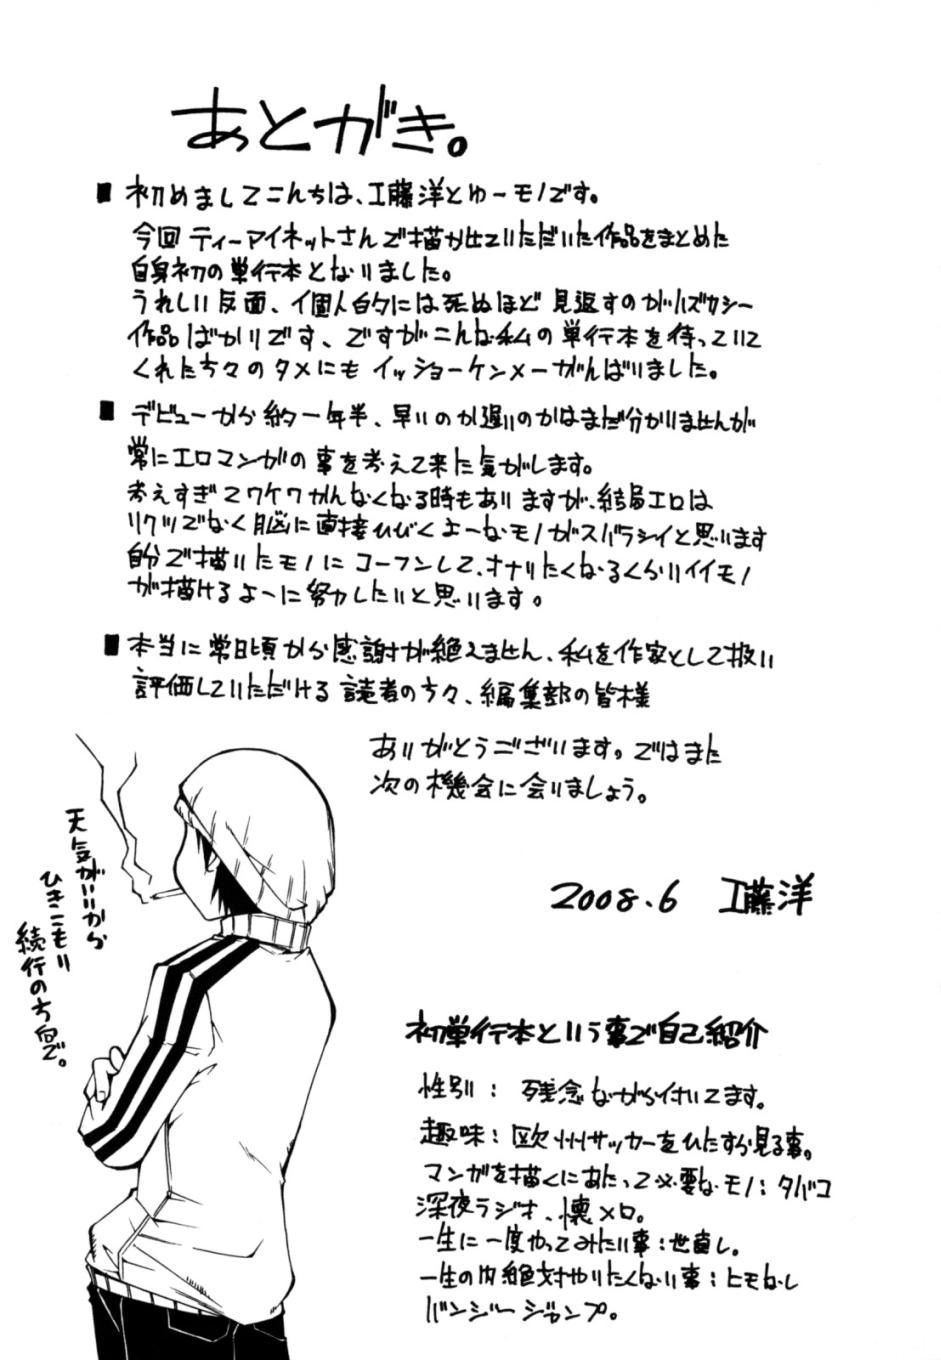 あとがき。
■ 初めましてこんちは、工藤洋とゆーモノです。
今回 ティーアイネットさんで描かせていただいた作品をまとめた
自身初の単行本となりました。
うれしい反面、個人的には死ぬほど見返すのがハズカシー
作品ばかりです、ですがこんな私の単行本を待っていて
くれた方々のタメにも イッショーケンメーがんばりました。
■ デビューから約一年半、早いのか遅いのかはまだ分かりませんが
常にエロマンガの事を考えて来た気がします。
考えすぎてワケワかんなくなる時もありますが、結局エロは
リクツでなく脳に直接ひびくよーなモノがスバラシイと思います
自分で描いたモノにコーフンして、オナりたくなるくらいイイモノ
が描けるよーに努力したいと思います。
■ 本当に常日頃から感謝が絶えません、私を作家として扱い
評価していただける読者の方々、編集部の皆様
ありがとうございます。ではまた
次の機会に会いましょう。
2008.6 工藤洋
天気がいいから
ひきこもり
続行の方向で。
初単行本という事で自己紹介
性別：残念ながら付いてます。
趣味：欧州サッカーをひたすら見る事。
マンガを描くにあたって必要なモノ：タバコ
深夜ラジオ、懐メロ。
一生に一度やってみたい事：世直し。
一生の内絶対やりたくない事：ヒモなし
バンジージャンプ。